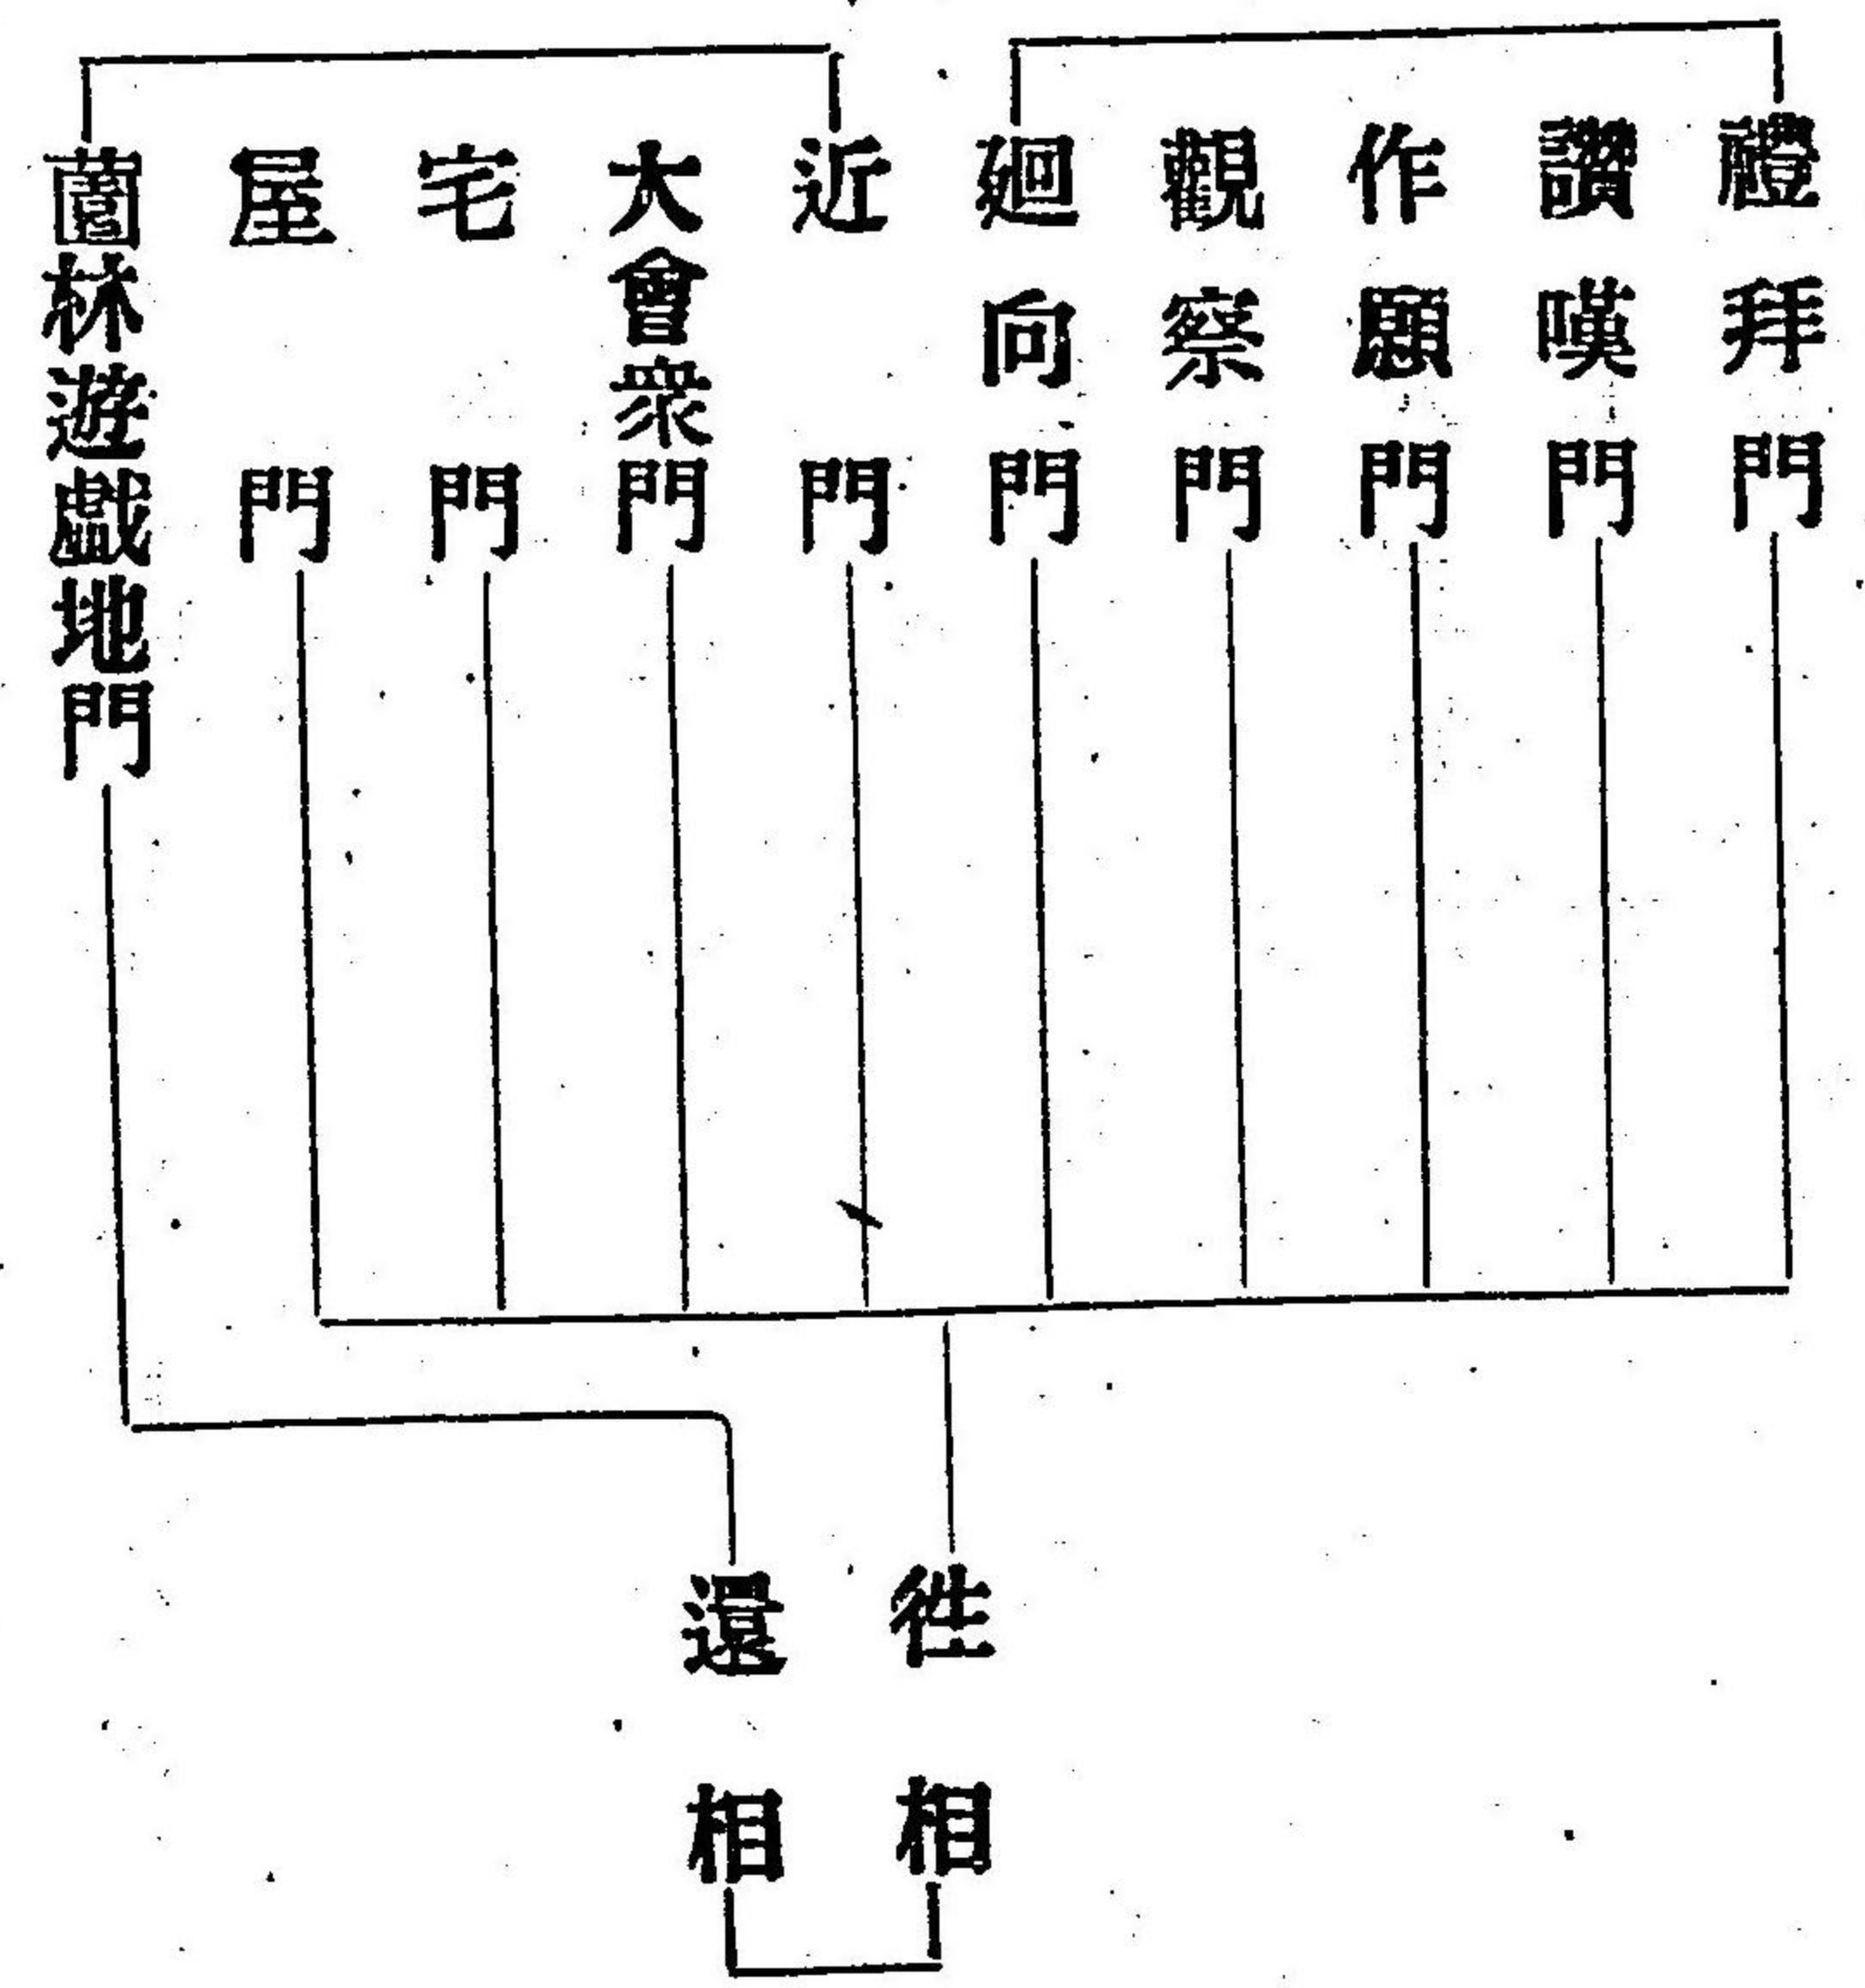 禮拜門
讚嘆門
作願門
觀察門
廻向門
近門
大會衆門
宅門
屋門
薗林遊戯地門
往相
還相